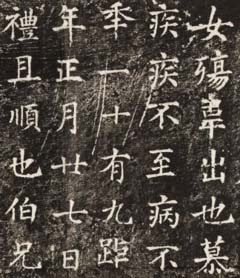 女殤韋出也慕
疾疾不至病不
秊一十有九距
年正月廿七日
禮且順也伯兄